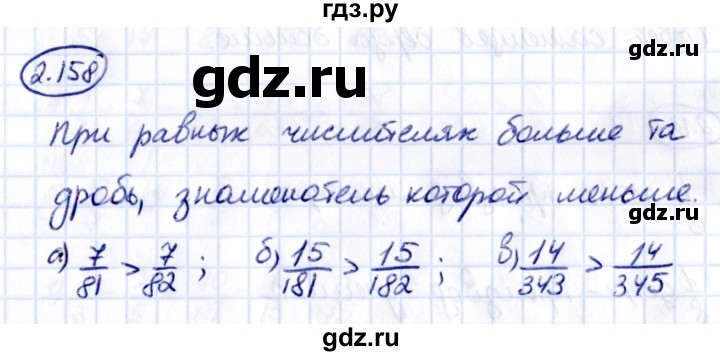 гдз.ру
gdz.ru
2.158
gdz.ru
При равных числителях больше та
дробь, знаменатель которой меньше.
gdz.ru
а) 7/81 > 7/82 ; б) 15/181 > 15/182 ; в) 14/343 > 14/345
gdz.ru